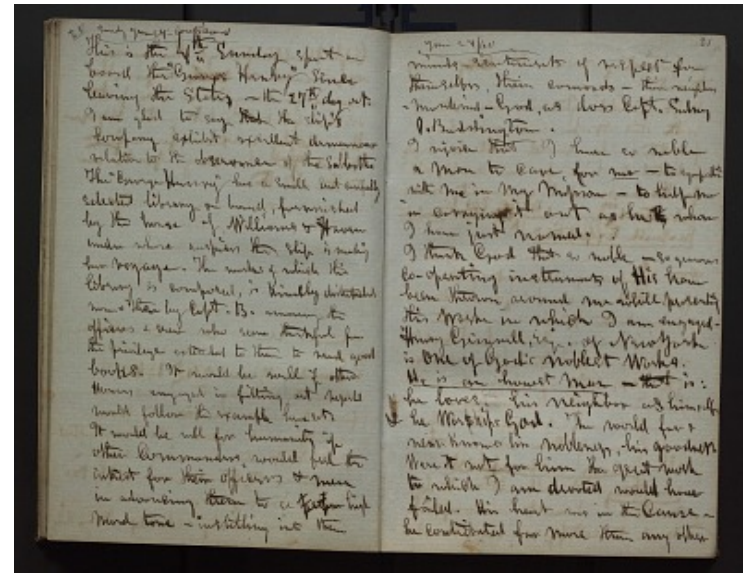 This is the 4th Sunday spent on
board the "George Henry" Since
leaving the States – the 27th day out.
I am glad to say that the ship's
Company exhibit excellent demeanor
relation to the observance of the Sabbath
The "George Henry" has a small but carefully
selected library on board, furnished
by the house of Williams & Haven
under whose auspices the ship is making
her voyage. The number of which this
library is composed, is kindly distributed
now & then by Capt. B. among the
officers & men who seem thankful for
the privilege extended to them to read good
books. It would be well if other
Houses engaged in fitting out vessels
would follow the example here set.
It would be well for humanity if
other Commanders, would feel the
interest for their Officers & men
in advancing them to a high
Moral tone – instilling into their
June 24/60
21
minds sentiments of respect for
themselves, their comrads – their neighbor
– mankind – God, as does Capt. Sidney
O. Buddington.
I rejoice that I have so noble
a Man to care for me – to sympathize
with me in My Mission – to help me
in carrying it out as he whom
I have just named.
I thank God that so noble – so generous
co-operating instruments of His have
been thrown around me while prosecuting
this Work in which I am engaged.
Henry Grinnell, Esq. of New York
is One of God's noblest Works.
He is an honest Man – that is:
he loves his neighbor as himself
he Worships God. The world far &
near know his nobleness, his goodness
Were it not for him the great work
to which I am devoted would have
failed. His heart was in the Cause –
he contributed far more than any other